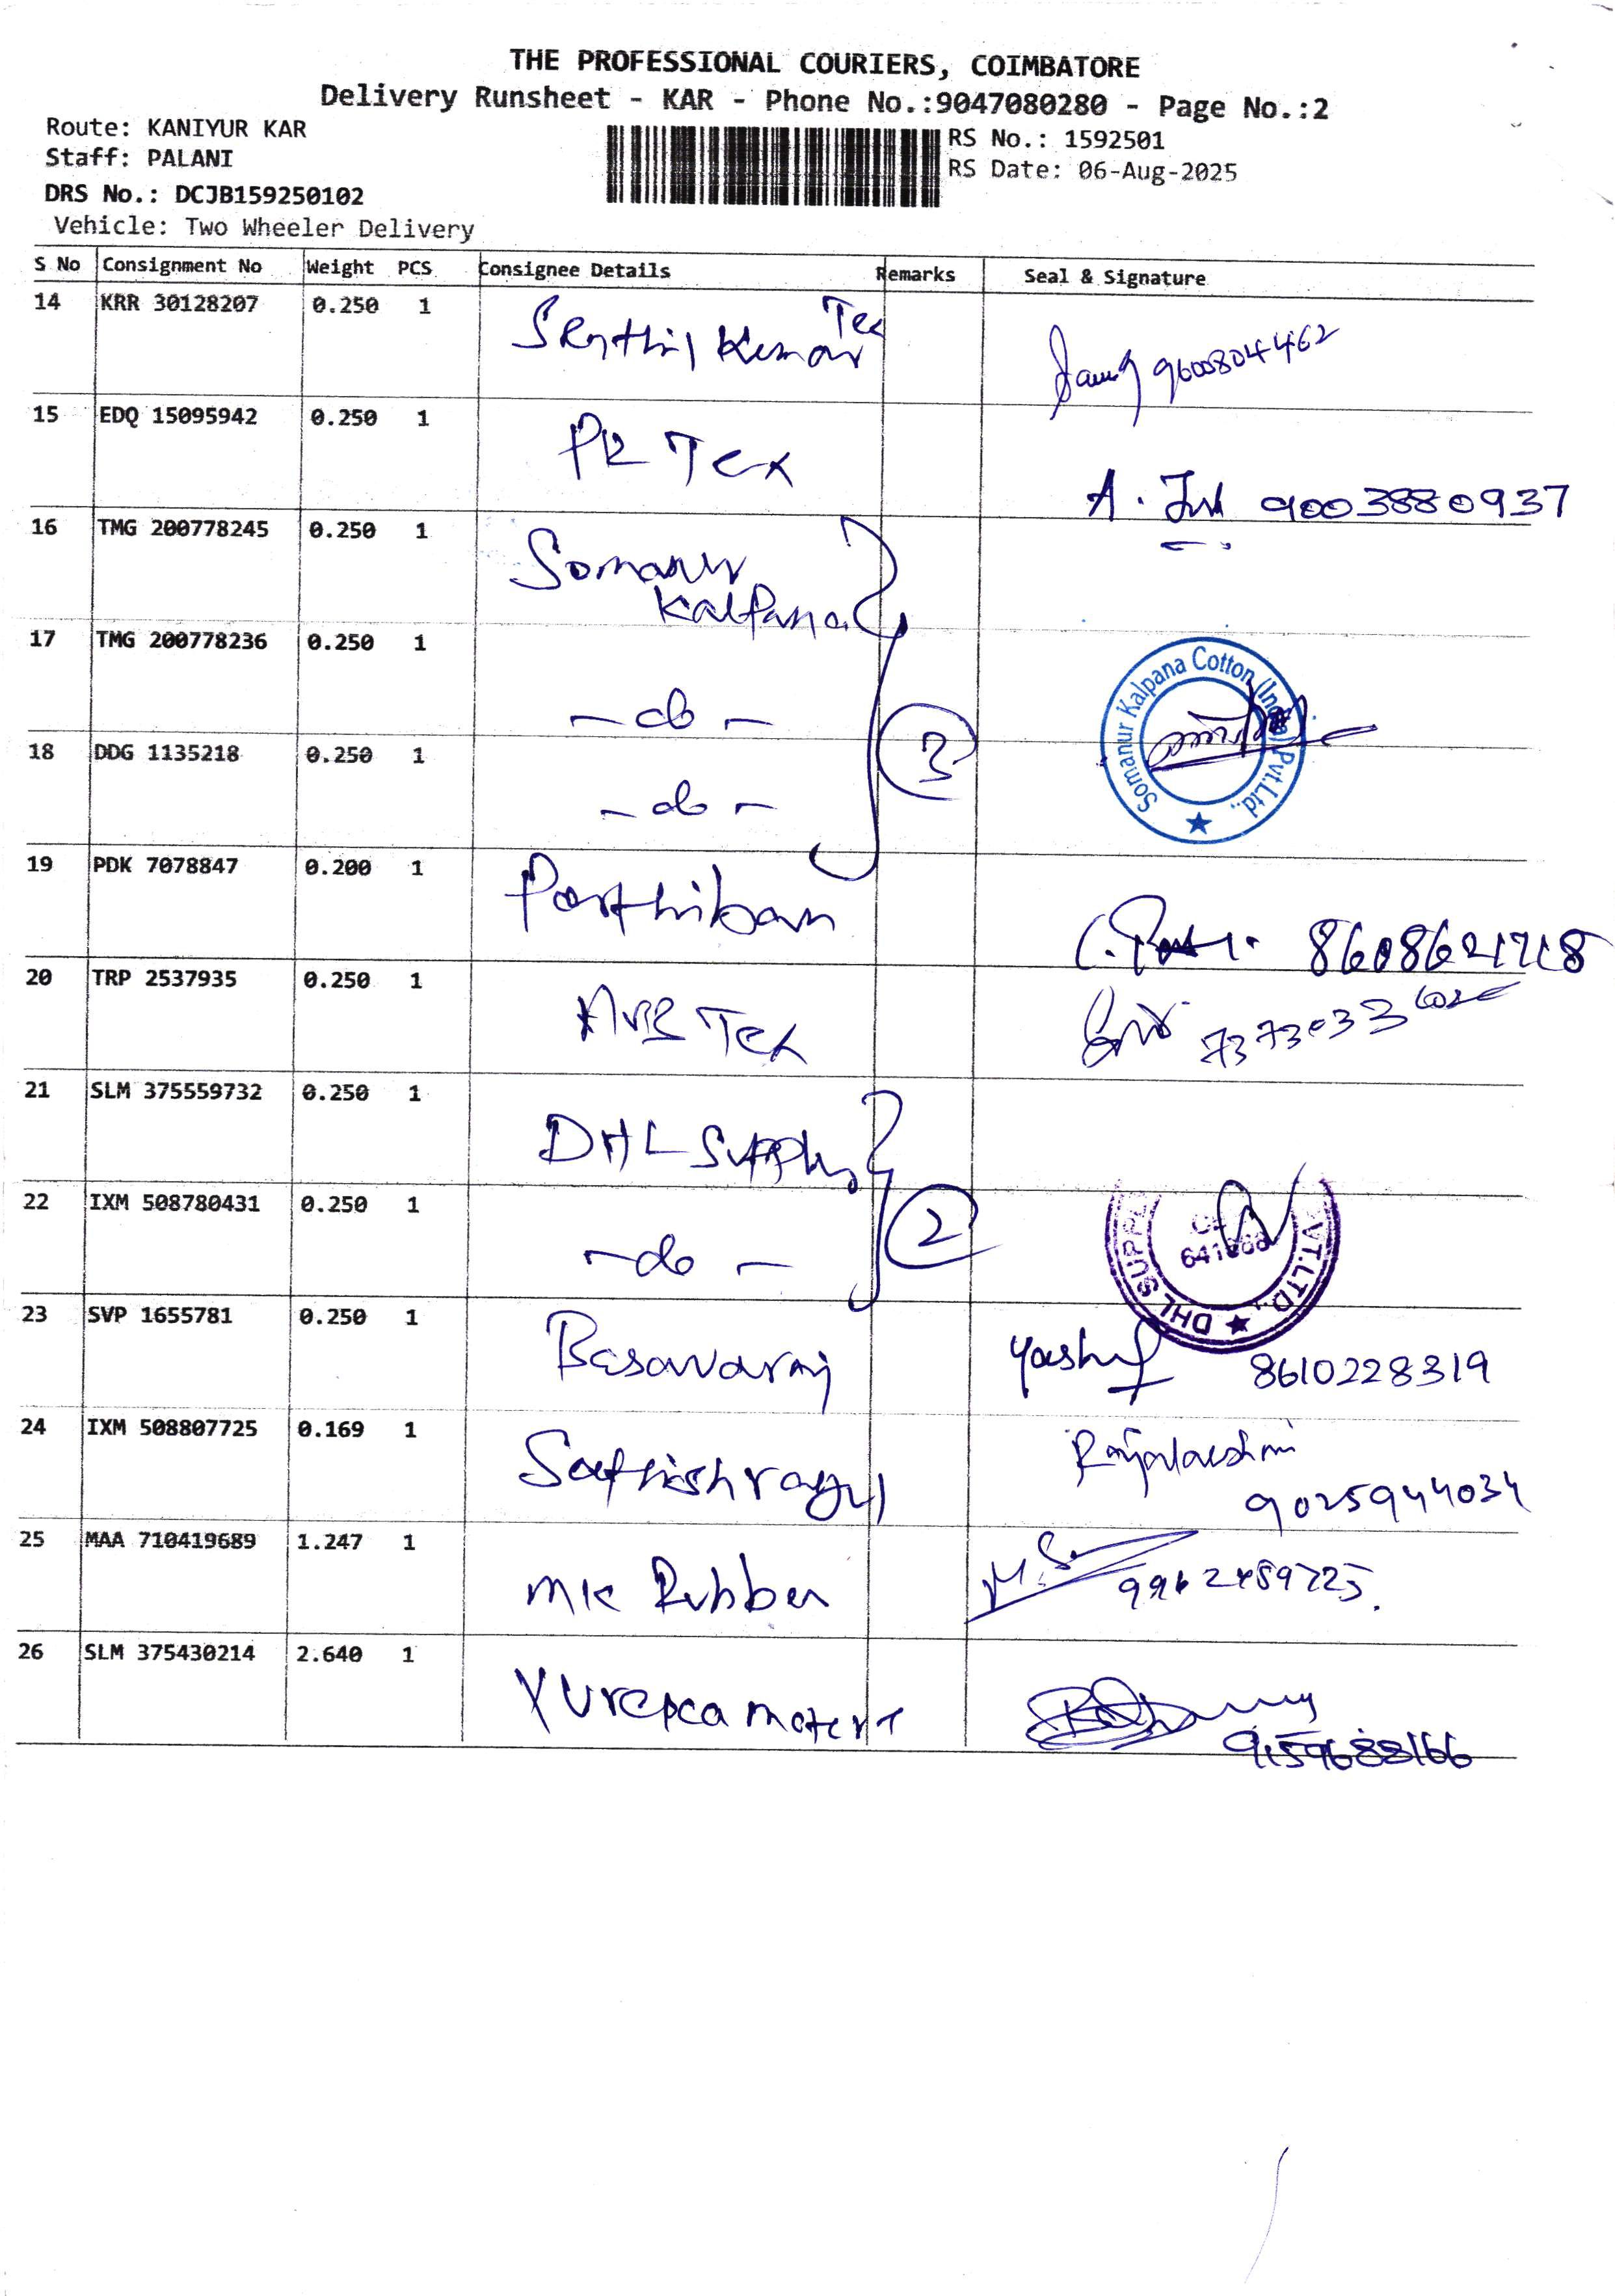 THE PROFESSIONAL COURIERS, COIMBATORE
Delivery Runsheet - KAR - Phone No.:9047080280 - Page No.:2
Route: KANIYUR KAR
RS No.: 1592501
Staff: PALANI
RS Date: 06-Aug-2025
DRS No.: DCJB159250102
Vehicle: Two Wheeler Delivery
S No Consignment No Weight PCS Consignee Details Remarks Seal & Signature
14 KRR 30128207 0.250 1 Senthil Kumar Tex
9600804462
15 EDQ 15095942 0.250 1 PR Tex
A. 9003880937
16 TMG 200778245 0.250 1 Somanur Kalpana
17 TMG 200778236 0.250 1 - do -
3
Somanur Kalpana Cotton (India) Pvt.Ltd.,
18 DDG 1135218 0.250 1 - do -
19 PDK 7078847 0.200 1 Parthiban
8608621718
20 TRP 2537935 0.250 1 Tex
7373033
21 SLM 375559732 0.250 1 DHL Supply
22 IXM 508780431 0.250 1 - do -
2
DHL SUPPL VT.LTD.,
23 SVP 1655781 0.250 1 Basavaraj
8610228319
24 IXM 508807725 0.169 1 Sathishragul
Rajalakshmi
9025944034
25 MAA 710419689 1.247 1 MK Rubber
M.S
26 SLM 375430214 2.640 1
9159688166